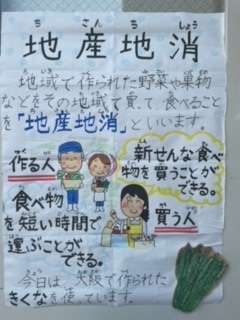 ち さん ち しょう
地産地消
地域で作られた野菜や果物
などをその地域で買って食べること
を「地産地消」といいます。
作る人
新せんな食べ
物を買うことが
できる。
食べ物
を短い時間で
運ぶことが
できる。
買う人
今日は、矢阪で作られた
きくなを使っています。